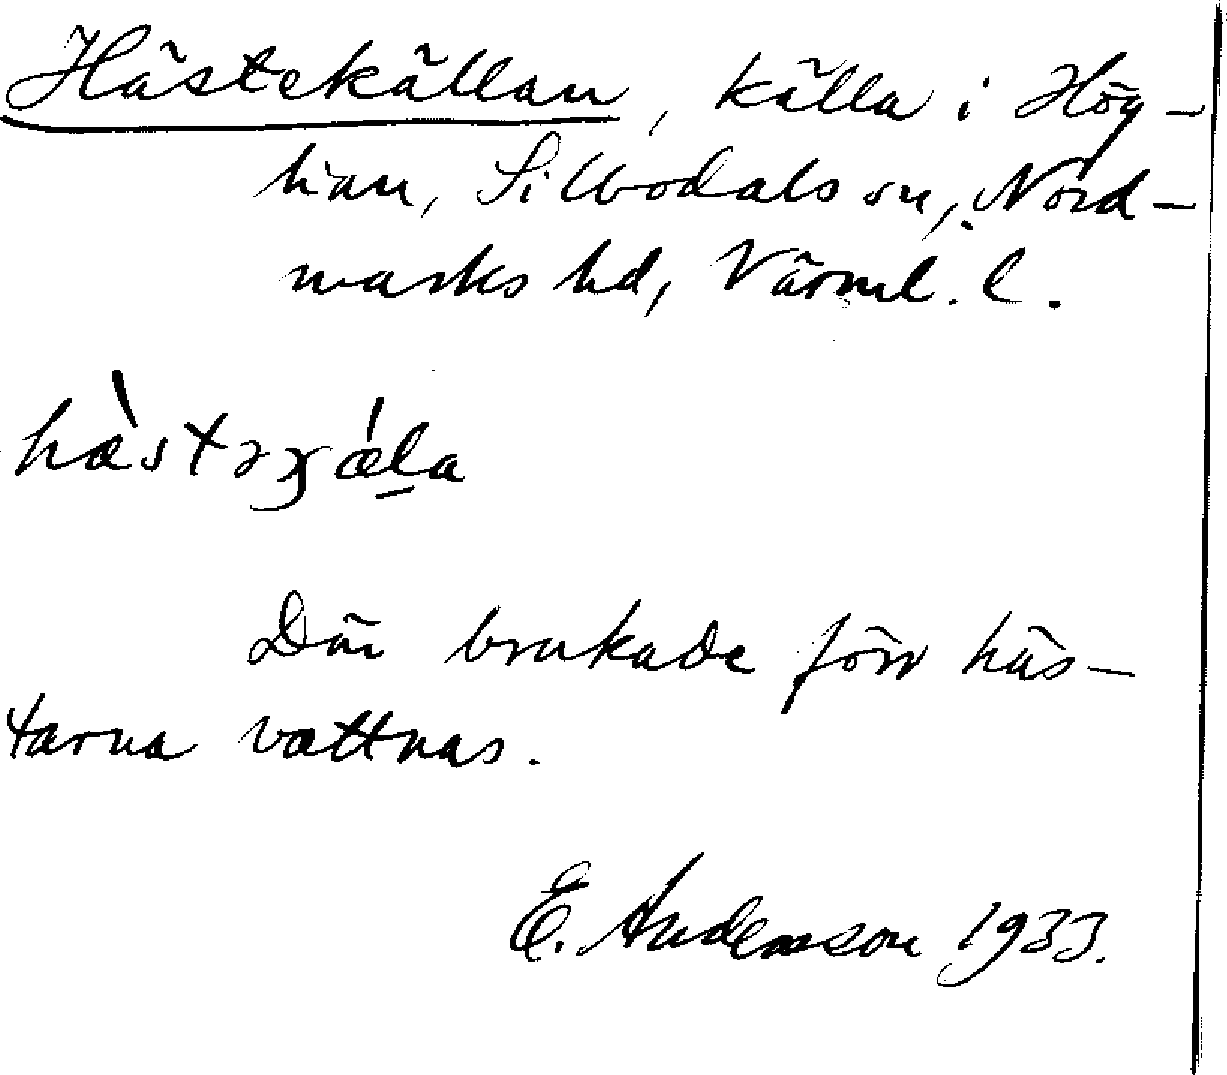 Hästekällan, källa i Hög-
hian, Silbodals sn, Nord-
marks hd, Värml. l.
Där brukade förr häs-
tarna vattnas.
E. Andersson 1933.